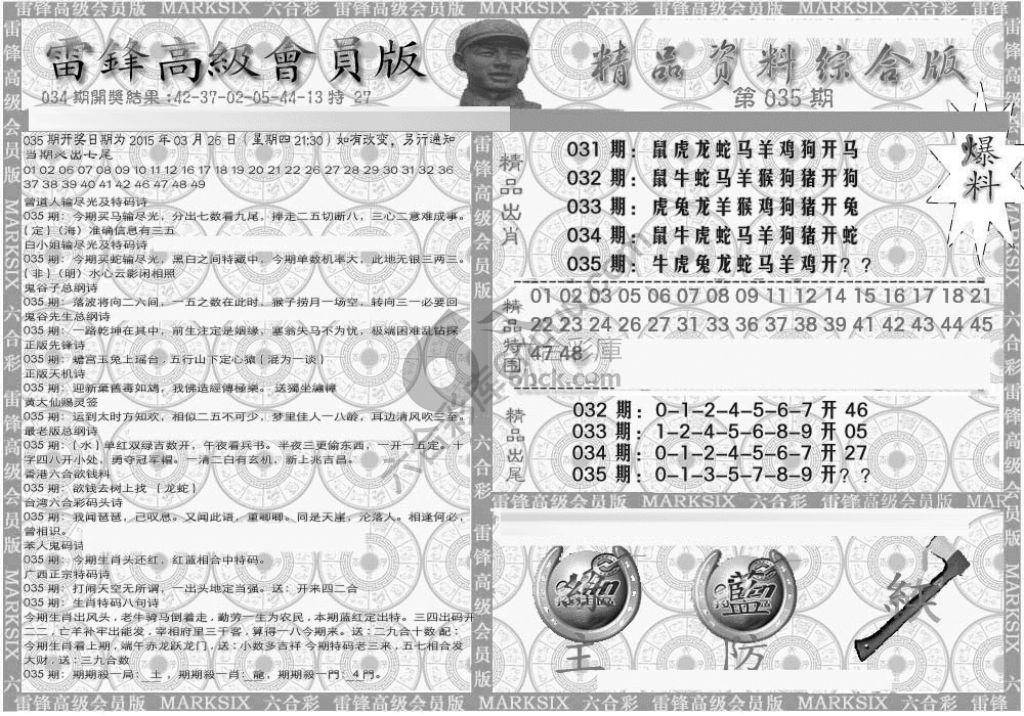 雷锋高级会员版 MARKSIX 六合彩 雷锋高级会员版 MARKSIX 六合彩 雷锋高级会员版 MARKSIX 六合彩 雷锋
雷鋒高級會員版
精品资料综合版
034期開獎結果:42-37-02-05-44-13特 27
第 035 期
035期开奖日期为2015年03月26日(星期四21:30)如有改变，另行通知
当期必出七尾
01 02 06 07 08 09 10 11 12 16 17 18 19 20 21 22 26 27 28 29 30 31 32 36
37 38 39 40 41 42 46 47 48 49
曾道人输尽光及特码诗
035期：今期买马输尽光，分出七数看九尾，捧走二五切断八，三心二意难成事。
{定}（海）准确信息有三五
白小姐输尽光及特码诗
035期：今期买蛇输尽光，黑白之间特藏中，今期单数机率大，此地无银三两三。
{非}（明）水心云影闲相照
鬼谷子总纲诗
035期：落波将向二六间，一五之数在此时，猴子捞月一场空，转向三一必要回
鬼谷先生总纲诗
035期：一路乾坤在其中，前生注定是姻缘，塞翁失马不为忧，极端困难乱钻探
正版先锋诗
035期：蟾宫玉兔上瑶台，五行山下定心猿{混为一谈}
正版天机诗
035期：迎新棄舊毒如鴆，我佛造經傳極樂。送獨坐
黄大仙赐灵签
035期：运到太时方知欢，相似二五不可少，梦里佳人一八龄，耳边清风吹三至。
最老版总纲诗
035期：{水}单红双绿吉数开，午夜看兵书。半夜三更偷东西，一开一五定。十
字四八开小处，勇夺冠军帽。一清二白有玄机，新上兆吉昌。
香港六合欲钱料
035期：欲钱去树上找 {龙蛇}
台湾六合彩码头诗
035期：我闻琶琶，已叹息。又闻此语，重唧唧。同是天崖，沦落人。相逢何必，
曾相识。
本人鬼码诗
035期：今期生肖头还红，红蓝相合中特码。
广西正宗特码诗
035期：打闹天空无所谓，一出头地定当强。送：开来四二合
035期：生肖特码八句诗
今期生肖出风头，老牛骑马倒着走，勤劳一生为农民，本期蓝红定出特。三四出码开
二二，亡羊补牢出能发，宰相府里三千客，算得一八今期来。送：二九合十数 配：
今期生肖看上期，端午赤龙跃龙门，送：小数多吉祥 今期特码老三来，五七相合发
大财，送：三九合数
035期：期期殺一局：土，期期殺一肖：龍，期期殺一門：4門。
精品出肖
031 期：鼠虎龙蛇马羊鸡狗开马
032 期：鼠牛蛇马羊猴狗猪开狗
033 期：虎兔龙羊猴鸡狗猪开兔
034 期：鼠牛虎龙蛇马狗猪开蛇
035 期：牛虎兔龙蛇马羊鸡开？？
爆料
精品特围
01 02 03 05 06 07 08 09 11 12 14 16 17 18 21
22 23 24 26 27 31 33 36 37 38 39 41 42 43 44 45
47 48
精品出尾
032 期：0-1-2-4-5-6-7 开 46
033 期：1-2-4-5-6-8-9 开 05
034 期：0-1-2-4-5-6-7 开 27
035 期：0-1-3-5-7-8-9 开？？
雷锋高级会员版 MARKSIX 六合彩 雷锋高级会员版 MARKSIX
綠
藍
主
防
雷锋高级会员版 MARKSIX 六合彩 雷锋高级会员版 MARKSIX 六合彩 雷锋高级会员版 MARKSIX 六合彩 雷锋